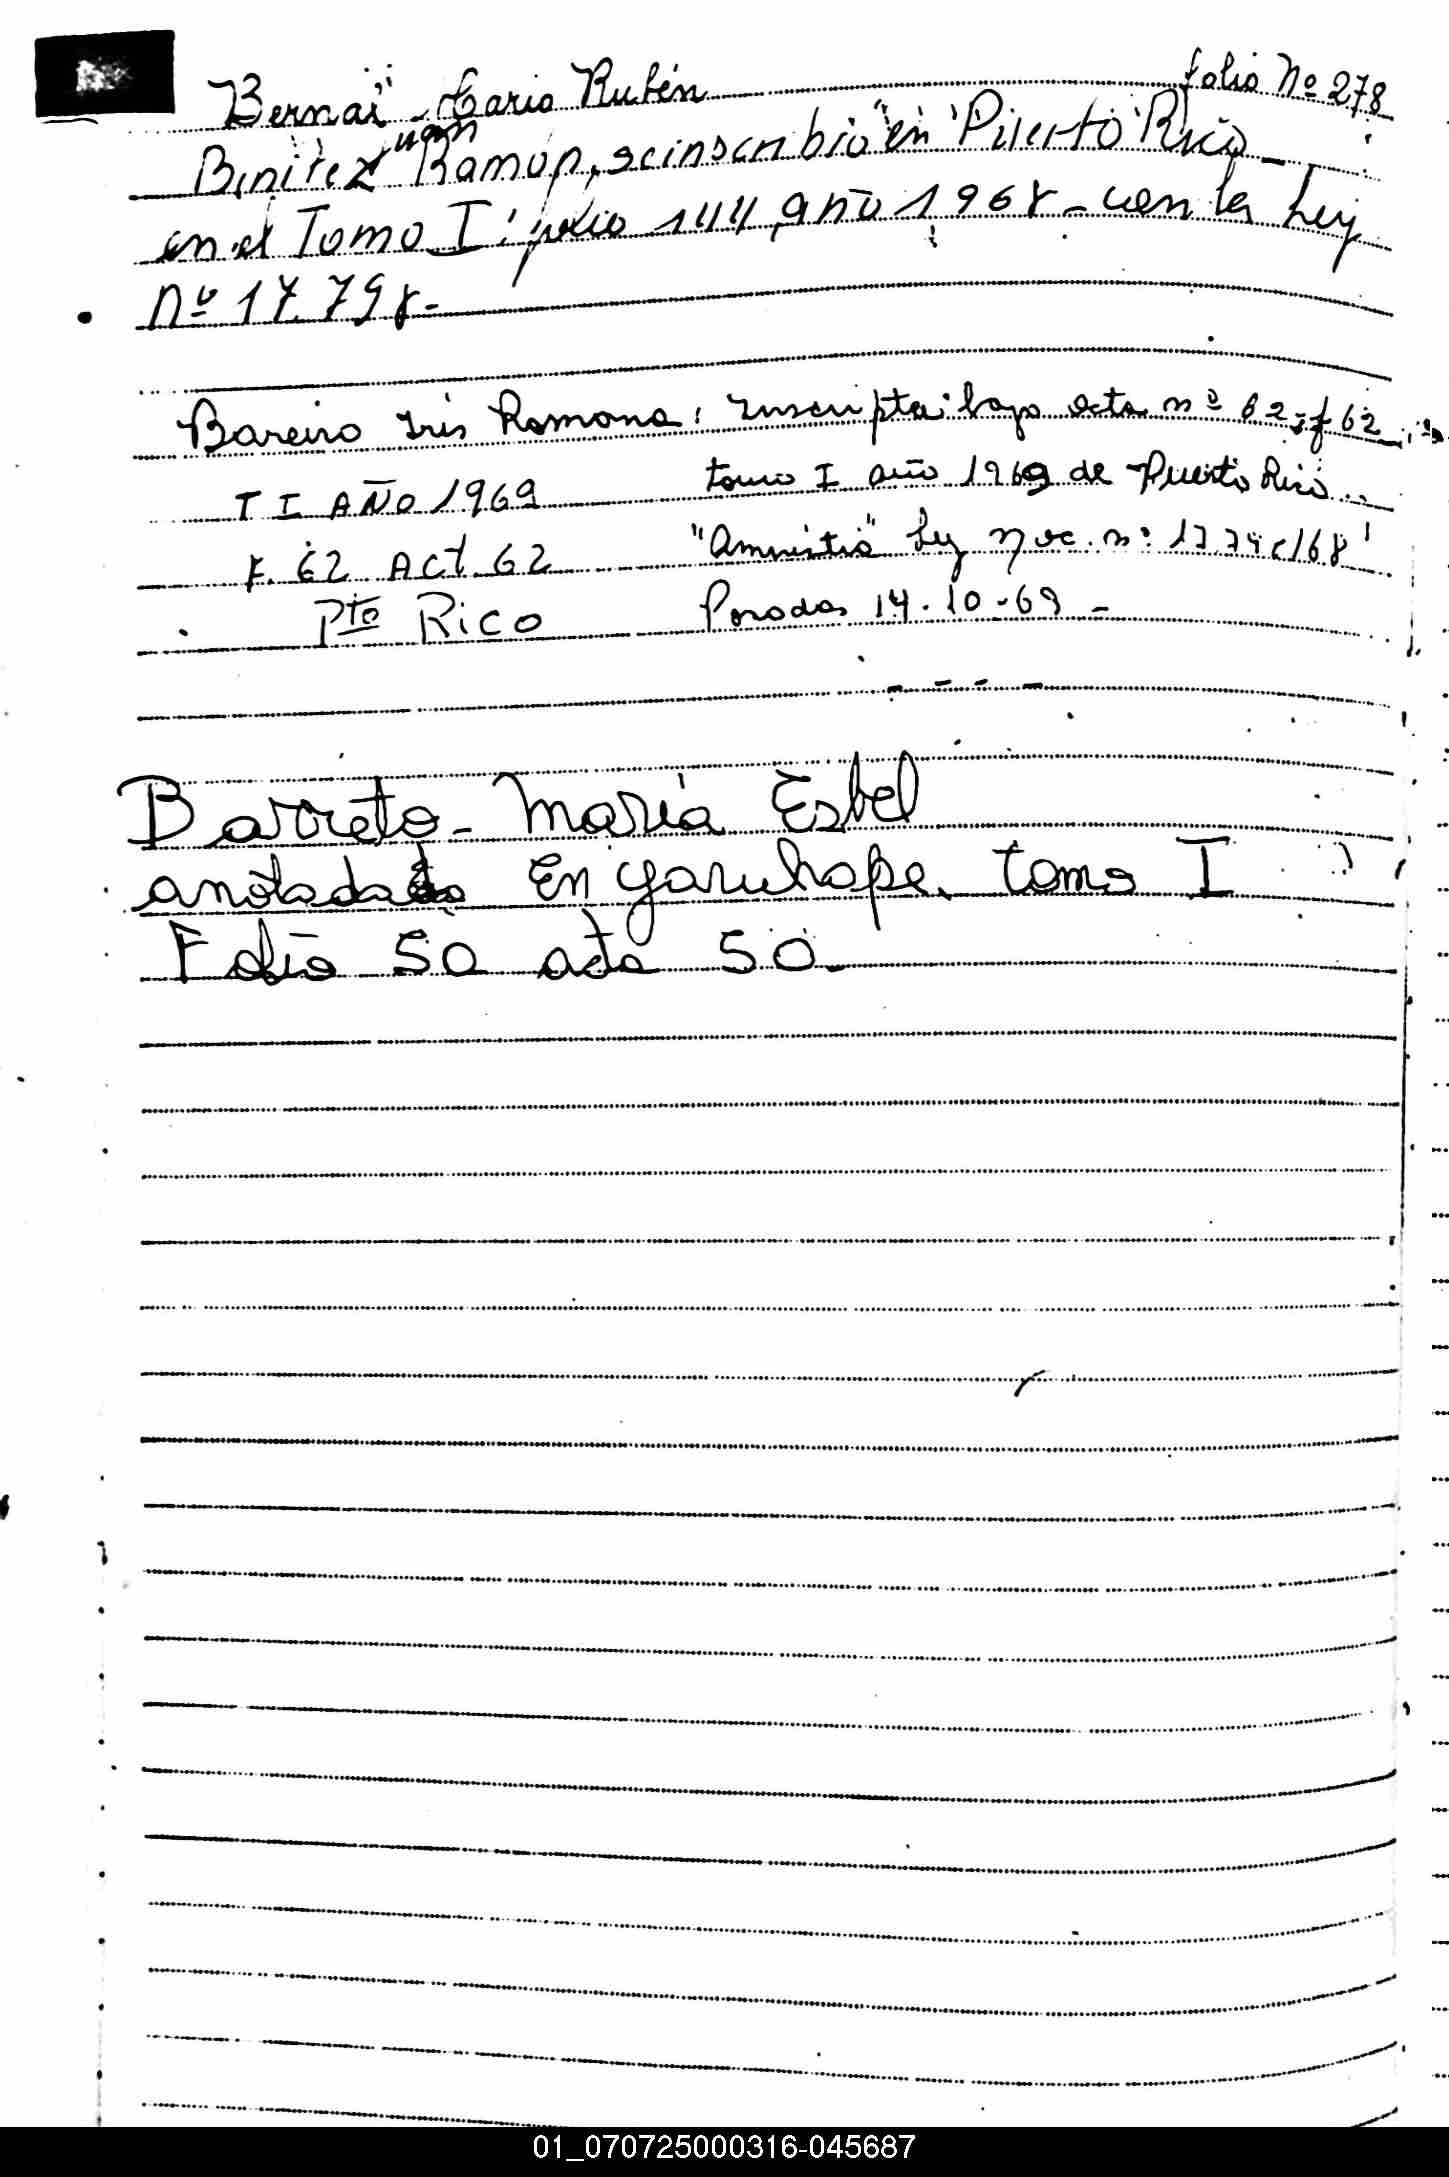 Bernai - Dario Rubén folio Nº 278
Benitez Juan Ramon, se inscribio en Puerto Rico -
en el Tomo I folio 144, año 1968 - con la Ley
nº 17.798 -
Bareiro Iris Ramona: Inscripta bajo acta nº 62, f 62
T I AÑO 1969 tomo I año 1969 de Puerto Rico
F. 62 Act. 62 "Amnistia" Ley nac. nº
Pto Rico Posadas 14-10-69 -
Barreto - Maria Estel
anotada En Garuhape. tomo I
Folio 50 acta 50.
01_070725000316-045687